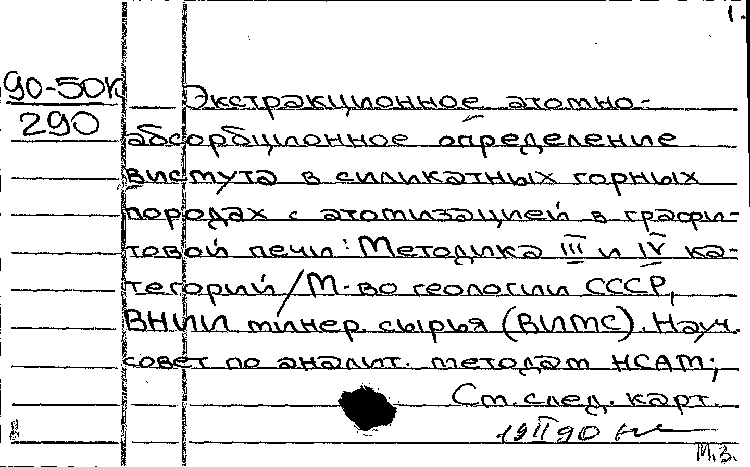 1.
90-50К
290
Экстракционное атомно-
абсорбционное определение
висмута в силикатных горных
породах с атомизацией в графи-
товой печи: Методика III и IV ка-
тегорий/М-во геологии СССР,
ВНИИ минер. сырья (ВИМС). Науч.
совет по аналит. методам НСАМ;
См. след. карт.
19 II 90
М.З.